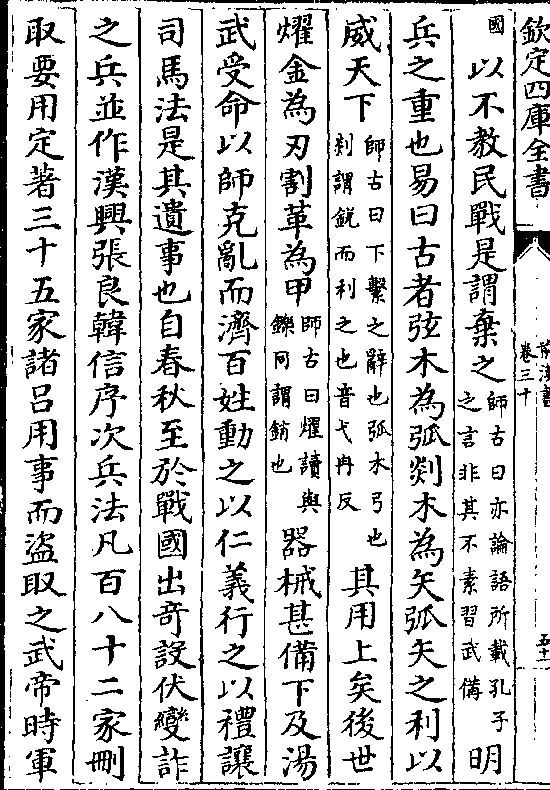 欽定四庫全書
前漢書
卷三十
五十一
國
以不教民戰是謂棄之
師古曰亦論語所載孔子
之言非其不素習武備
明
兵之重也易曰古者弦木為弧剡木為矢弧矢之利以
威天下
師古曰下繫之辭也弧木弓也
剡謂銳而利之也音弋冉反
其用上矣後世
燿金為刃割革為甲
師古曰燿讀與
鑠同謂銷也
器械甚備下及湯
武受命以師克亂而濟百姓動之以仁義行之以禮讓
司馬法是其遺事也自春秋至於戰國出奇設伏變詐
之兵並作漢興張良韓信序次兵法凡百八十二家刪
取要用定著三十五家諸呂用事而盜取之武帝時軍